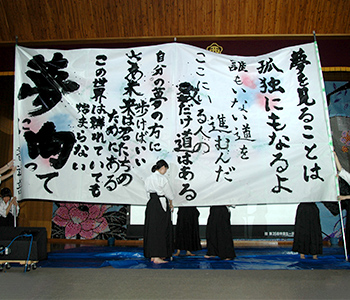 夢を見ることは
孤独にもなるよ
誰もいない道を
進むんだ
ここにいる人の
数だけ道はある
自分の夢の方に
歩けばいい
さあ未来は君たちの
ためにある
この世界は群れていても
始まらない
夢に向って